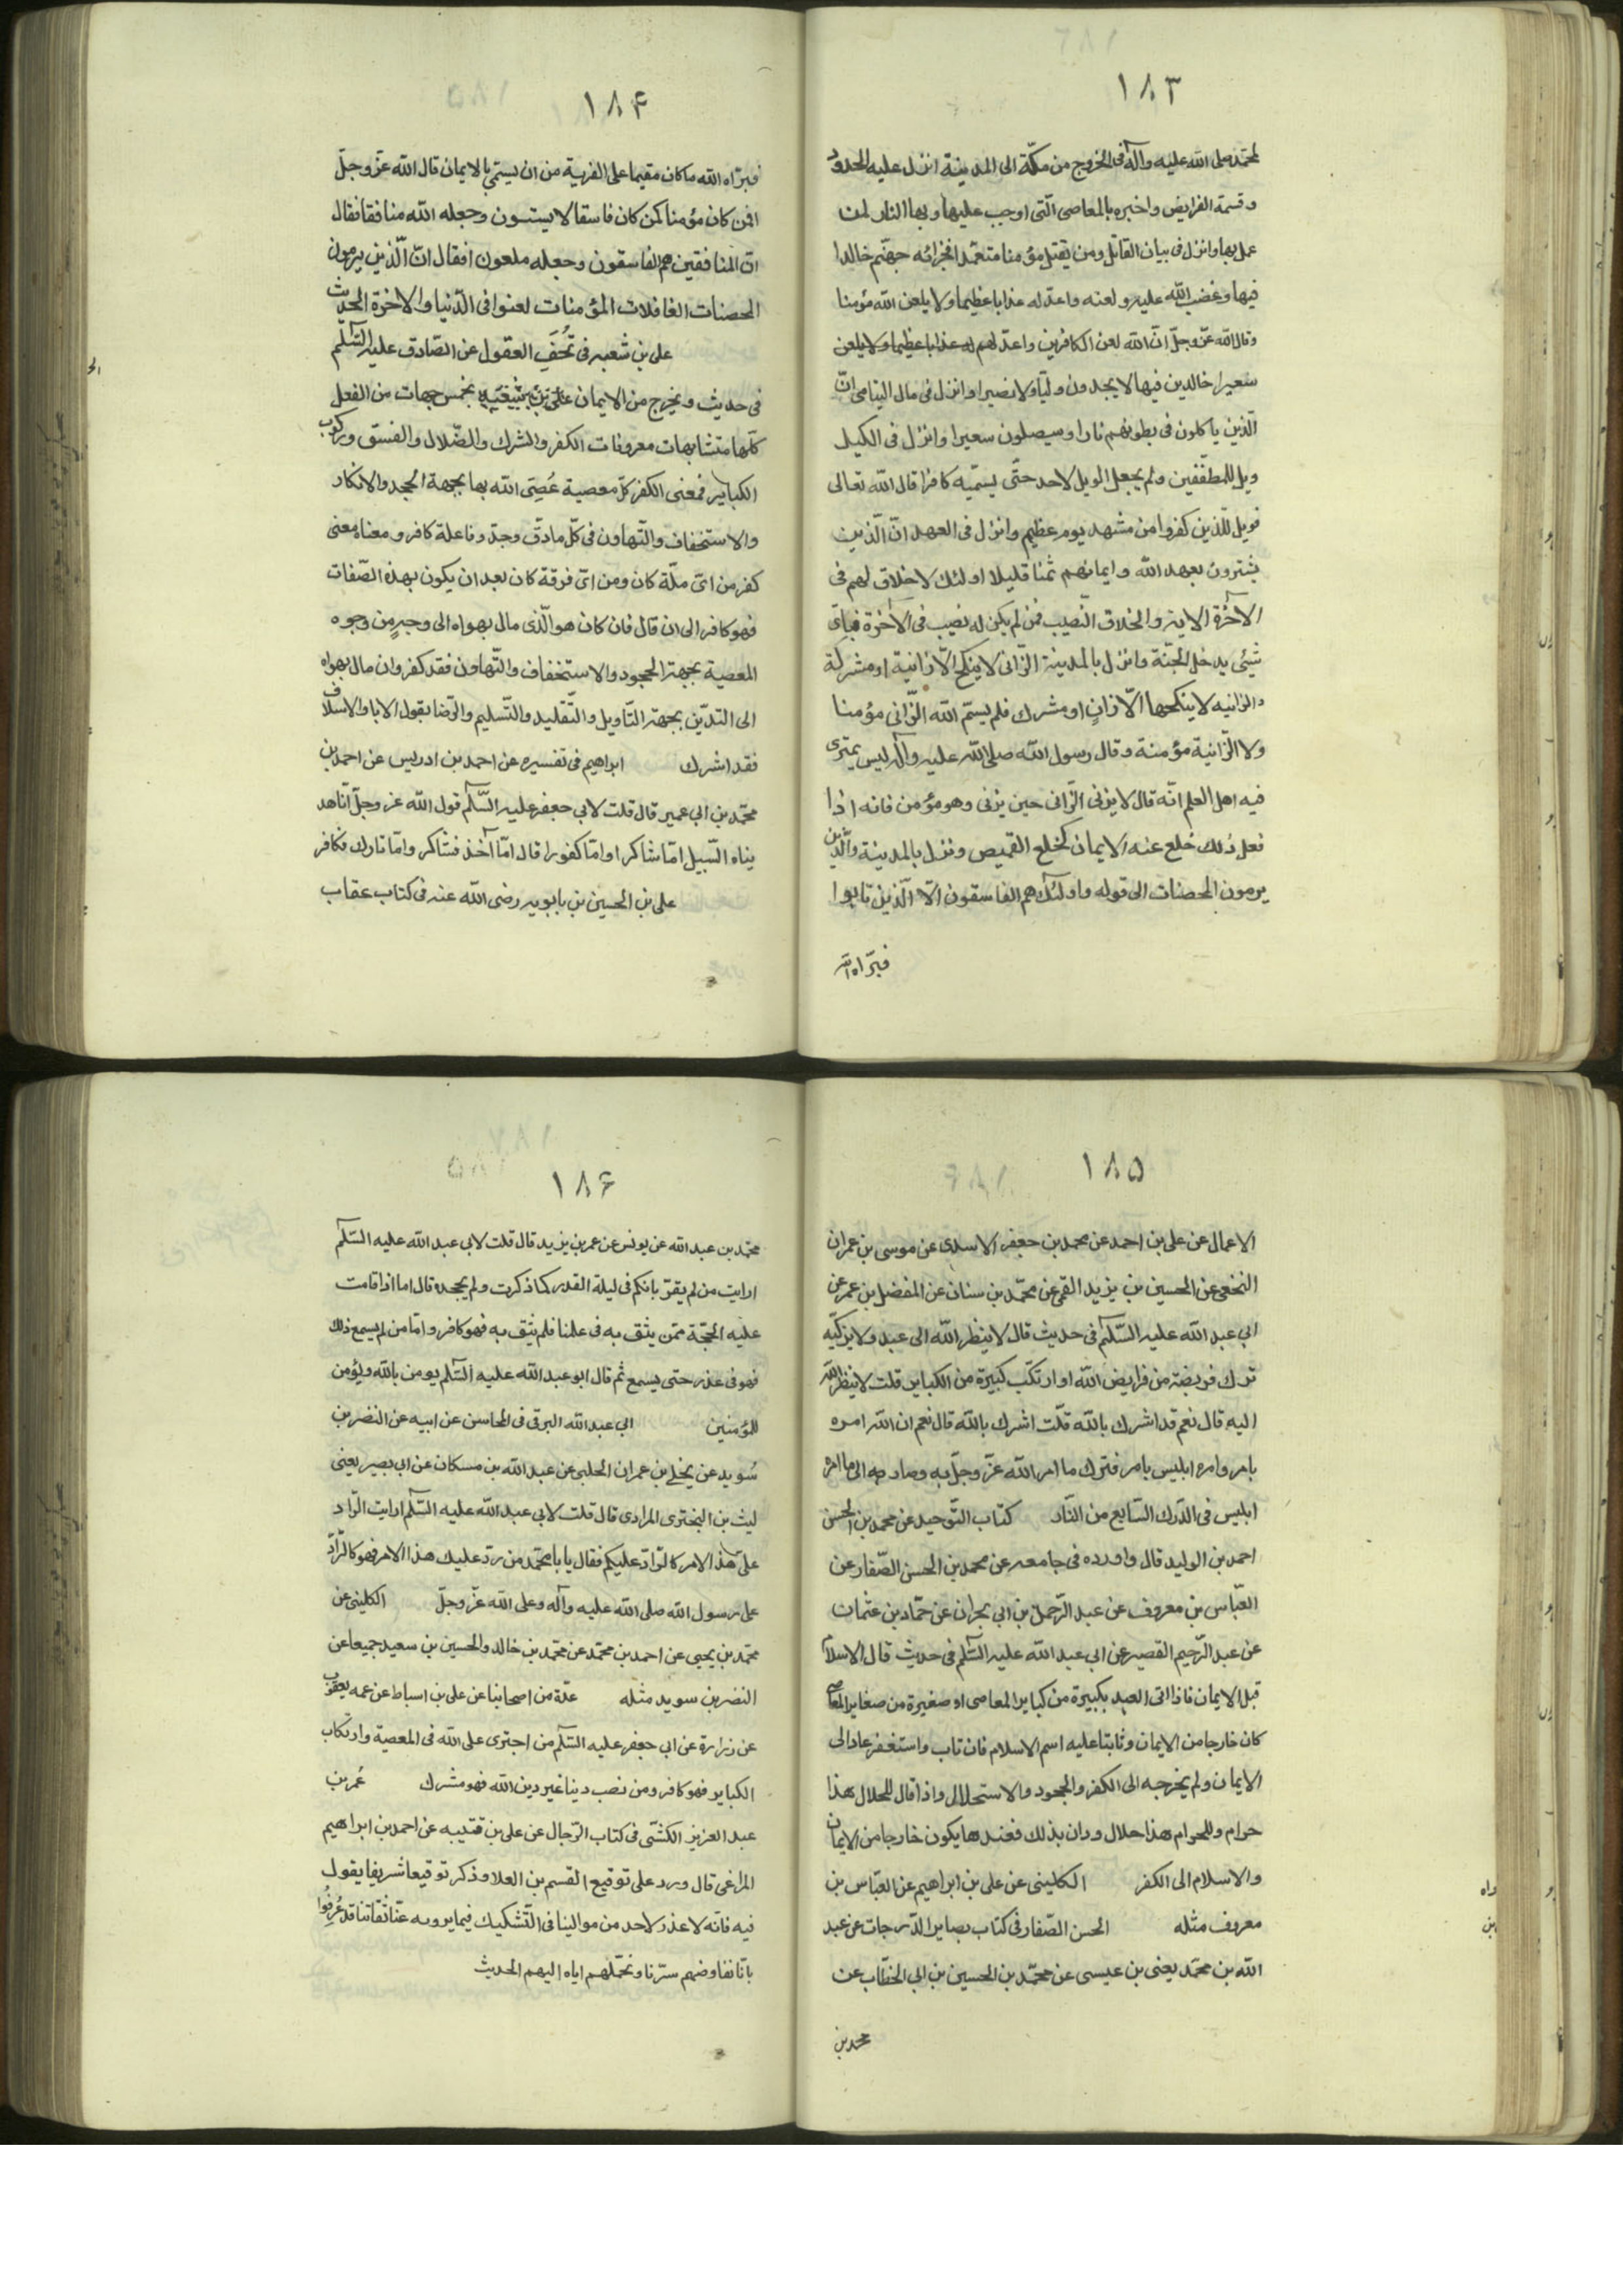 ١٨٣
لمحمّد صلى الله عليه وآله فى الخروج من مكّة الى المدينة انزل عليه الحدود
وقسمة الفرايض واخبره بالمعاصى الّتى اوجب عليها وبها النار لمن
عمل بها وانزل فى بيان القاتل ومن يقتل مؤمنا متعمّدا فجزائه جهنّم خالدا
فيها وغضب اللّه عليه ولعنه واعدّ له عذابا عظيما ولا يلعن الله مؤمنا
وقال الله عزّ وجلّ انّ الله لعن الكافرين واعدّ لهم
سعيرا خالدين فيها لا يجدون وليّا ولا نصيرا وانزل فى مال اليتامى انّ
الّذين ياكلون فى بطونهم نارا وسيصلون سعيرا وانزل فى الكيل
ويل للمطفّفين ولم يجعل الويل لاحد حتّى يسمّيه كافرا قال اللّه تعالى
فويل للّذين كفروا من مشهد يوم عظيم وانزل فى العهد انّ الّذين
يشترون بعهد اللّه وايمانهم ثمنا قليلا اولئك لا خلاق لهم فى
الآخرة الاية والخلاق النّصيب فمن لم يكن له نصيب فى الآخرة فباىّ
شيئى يدخل الجنّة وانزل بالمدينة الزّانى لا ينكح الّا زانية او مشركة
والزانيه لا ينكحها الّا زانٍ او مشرك فلم يسمّ اللّه الزّانى مؤمنا
ولا الزّانية مؤمنة وقال رسول اللّه صلى اللّه عليه وآله ليس يمترى
فيه اهل العلم انّه قال لا يزنى الزّانى حين يزنى وهو مؤمن فانه اذا
فعل ذلك خلع عنه الايمان كخلع القميص ونزل بالمدينة والّذين
يرمون المحصنات الى قوله واولئك هم الفاسقون الّا الّذين تابوا
فبرّاه اللّه
١٨۴
فبرّاه اللّه ما كان مقيما على الفرية من ان يسمّى بالايمان قال اللّه عزّ وجلّ
افمن كان مؤمنا كمن كان فاسقا لا يستون وجعله اللّه منافقا فقال
انّ المنافقين هم الفاسقون وجعله ملعونا فقال انّ الّذين يرمون
المحصنات الغافلات المؤمنات لعنوا فى الدّنيا والاخرة الحديث
على بن شعبه فى تُحَفِ العقول عن الصّادق عليه السّلم
فى حديث ويخرج من الايمان بخمس جهات من الفعل
كلّها متشابهات معروفات الكفر والشرك والضّلال والفسق وركوب
الكبائر فمعنى الكفر كلّ معصية عُصِىَ اللّه بها بجهة الجحد والانكار
والاستخفاف والتّهاون فى كلّ ما دقّ وجلّ وفاعله كافر ومعناه معنى
كفر من اىّ ملّة كان ومن اىّ فرقة كان بعد ان يكون بهذه الصّفات
فهو كافر الى ان قال فان كان هو الّذى مال بهواه الى وجهٍ من وجوه
المعصية بجهة الجحود والاستخفاف والتّهاون فقد كفر وان مال بهواه
الى التديّن بجهة التّاويل والتّقليد والتّسليم والرّضا بقول الابا والاسلاف
فقد اشرك ابراهيم فى تفسيره عن احمد بن ادريس عن احمد بن
محمّد بن ابي عمير قال قلت لابي جعفر عليه السّلم قول اللّه عز وجلّ انّا هد
يناه السّبيل امّا شاكرا او امّا كفورا قال امّا آخذ فشاكر وامّا تارك فكافر
على بن الحسين بن بابويه رضى اللّه عنه فى كتاب عقاب
١٨۵
الاعمال عن على بن احمد عن محمد بن جعفر الاسدى عن موسى بن عمران
النخعى عن الحسين بن يزيد القمى عن محمّد بن سنان عن المفضل بن عمر عن
ابي عبد اللّه عليه السّلم فى حديث قال لا ينظر اللّه الى عبد ولا يزكّيه
ترك فريضة من فرايض اللّه او ارتكب كبيرة من الكباير قلت لا ينظر اللّه
اليه قال نعم قد اشرك باللّه قلت اشرك باللّه قال نعم ان اللّه امره
بامر وامره ابليس بامر فترك ما امر اللّه عزّ وجلّ به وصار الى ما امر
ابليس فى الدّرك السّابع من النّار كتاب التّوحيد عن محمد بن الحسن
احمد بن الوليد قال واورده فى جامعه عن محمد بن الحسن الصّفار عن
العبّاس بن معروف عن عبد الرّحمن بن ابي نجران عن حمّاد بن عثمان
عن عبد الرّحيم القصير عن ابي عبد اللّه عليه السّلم فى حديث قال الاسلام
قبل الايمان فاذا اتى العبد بكبيرة من كباير المعاصى او صغيرة من صغاير المعاصى
كان خارجا من الايمان وثابتا عليه اسم الاسلام فان تاب واستغفر عاد الى
الايمان ولم يخرجه الى الكفر والجحود والاستحلال واذا قال للحلال هذا
حرام وللحرام هذا حلال ودان بذلك فعندها يكون خارجا من الايمان
والاسلام الى الكفر الكلينى عن على بن ابراهيم عن العبّاس بن
معروف مثله الحسن الصّفار فى كتاب بصاير الدّرجات عن عبد
اللّه بن محمّد يعنى بن عيسى عن محمّد بن الحسين بن ابي الخطّاب عن
محمد بن
١٨۶
محمّد بن عبد اللّه عن يونس عن عمر بن يزيد قال قلت لابي عبد اللّه عليه السّلم
ارايت من لم يقرّ بانكم فى ليلة القدر كما ذكرت ولم يجحده قال اما اذا قامت
عليه الحجّة ممّن يثق به فى علمنا فلم يثق به فهو كافر وامّا من لم يسمع ذلك
فهو فى عذر حتى يسمع ثم قال ابو عبد اللّه عليه السّلم يومن باللّه ويؤمن
للمؤمنين ابي عبد اللّه البرقى فى المحاسن عن ابيه عن النضر بن
سُويد عن يحيى بن عمران الحلبى عن عبد اللّه بن مسكان عن ابي بصير يعنى
ليث بن البخترى المرادى قال قلت لابي عبد اللّه عليه السّلم ارايت الرّاد
علىّ هذا الامر كالرّادّ عليكم فقال يا با محمّد من ردّ عليك هذا الامر فهو كالرّادّ
على رسول اللّه صلى اللّه عليه وآله وعلى اللّه عزّ وجلّ الكلينى عن
محمّد بن يحيى عن احمد بن محمّد عن محمّد بن خالد والحسين بن سعيد جميعا عن
النضر بن سويد مثله عدّة من اصحابنا عن على بن اسباط عن عمه يعقوب
عن زرارة عن ابي جعفر عليه السّلم من اجترى على اللّه فى المعصية وارتكاب
الكباير فهو كافر ومن نصب دينا غير دين اللّه فهو مشرك عُمر بن
عبد العزيز الكشّى فى كتاب الرّجال عن على بن قتيبه عن احمد بن ابراهيم
المراغى قال ورد على توقيع القسم بن العلا وذكر توقيعا شريفا يقول
فيه فانّه لا عذر لاحد من موالينا فى التّشكيك فيما يرويه عنّا ثقاتنا قد عُرِفُوا
بانّا نفاوضهم سرّنا ونحمّلهم اياه اليهم الحديث